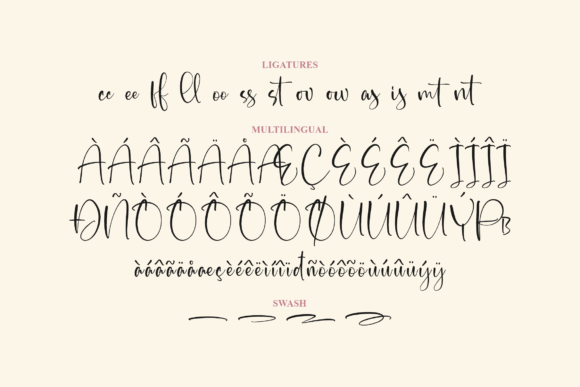 LIGATURES
cc ee ff ll oo ss st ov ow as is mt nt
MULTILINGUAL
ÀÁÂÃÄÅÆÇÈÉÊËÌÍÎÏ
ÐÑÒÓÔÕÖØÙÚÛÜÝÞß
àáâãäåæçèéêëìíîïðñòóôõöùúûüýÿ
SWASH